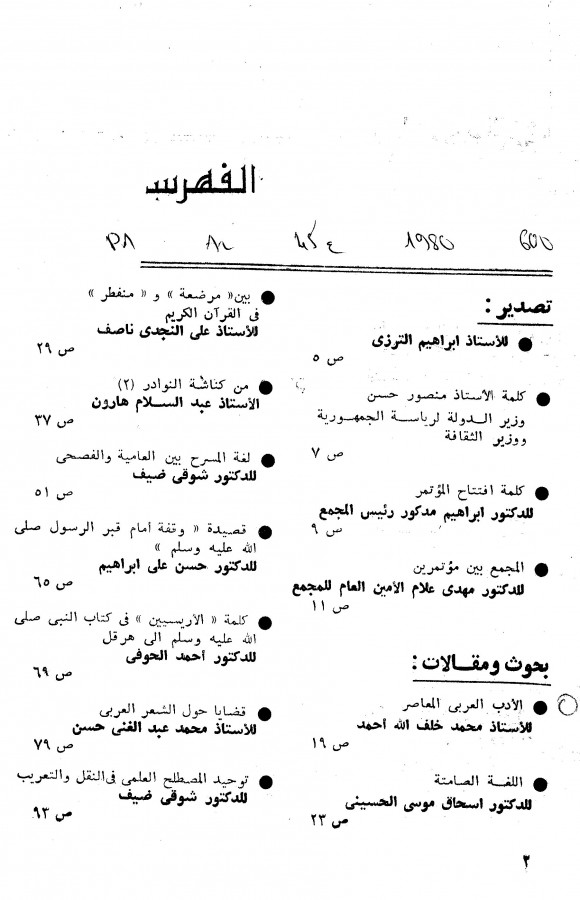 الفهرس
600 1980 ٤٥٤
تصدير :
● للأستاذ ابراهيم الترزى
ص ٥
● كلمة الأستاذ منصور حسن
وزير الدولة لرياسة الجمهورية
ووزير الثقافة
ص ٧
● كلمة افتتاح المؤتمر
للدكتور ابراهيم مدكور رئيس المجمع
ص ٩
● المجمع بين مؤتمرين
للدكتور مهدى علام الأمين العام للمجمع
ص ١١
بحوث ومقالات :
● الأدب العربى المعاصر
للأستاذ محمد خلف الله أحمد
ص ١٩
● اللغة الصامتة
للدكتور اسحاق موسى الحسينى
ص ٢٣
● بين « مرضعة » و « منفطر »
فى القرآن الكريم
للأستاذ على النجدى ناصف
ص ٢٩
● من كناشة النوادر (٢)
الأستاذ عبد السلام هارون
ص ٣٧
● لغة المسرح بين العامية والفصحى
للدكتور شوقى ضيف
ص ٥١
● قصيدة « وقفة أمام قبر الرسول صلى
الله عليه وسلم »
للدكتور حسن على ابراهيم
ص ٦٥
● كلمة « الأريسيين » فى كتاب النبى صلى
الله عليه وسلم الى هرقل
للدكتور أحمد الحوفى
ص ٦٩
● قضايا حول الشعر العربى
للأستاذ محمد عبد الغنى حسن
ص ٧٩
● توحيد المصطلح العلمى فى النقل والتعريب
للدكتور شوقى ضيف
ص ٩٣
٣